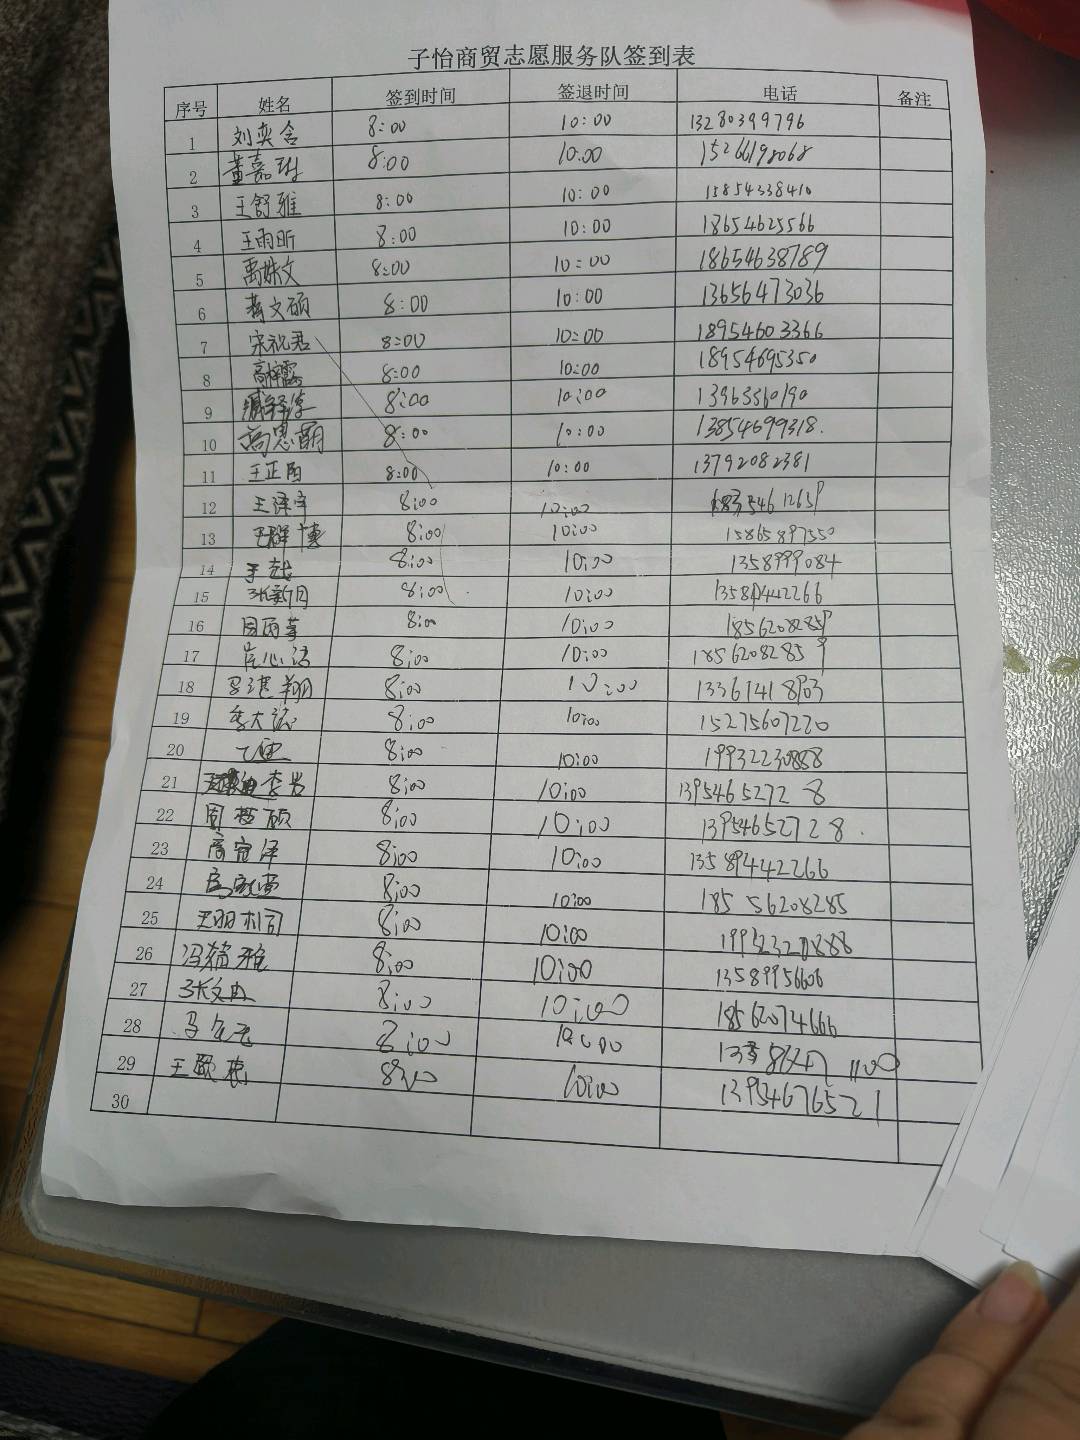 子怡商贸志愿服务队签到表
序号 姓名 签到时间 签退时间 电话 备注
1 刘奕含 8:00 10:00 13280399796
2 董嘉琳 8:00 10:00 15266198068
3 王舒雅 8:00 10:00 15854338410
4 王雨昕 8:00 10:00 18654625566
5 禹姝文 8:00 10:00 18654638789
6 文硕 8:00 10:00 13656473036
7 宋祝君 8:00 10:00 18954603366
8 高梓露 8:00 10:00 18954695350
9 8:00 10:00 13963360190
10 高思萌 8:00 10:00 13854699318.
11 王正阳 8:00 10:00 13792082381
12 王泽宇 8:00 10:00
13 王群博 8:00 10:00 15865897550
14 8:00 10:00 1358999084
15 张新月 8:00 10:00 13589442266
16 周雨萱 8:00 10:00 18562082859
17 心洁 8:00 10:00 18562082859
18 翔 8:00 10:00 13361418903
19 李大 8:00 10:00 15275607220
20 8:00 10:00 19932230888
21 8:00 10:00 13954652728
22 周 硕 8:00 10:00 13954652728.
23 商宜泽 8:00 10:00 13589442266
24 8:00 10:00 18556208285
25 8:00 10:00
26 冯 雅 8:00 10:00 13589956606
27 张文 8:00 10:00 18562074666
28 马 8:00 10:00
29 王 8:00 10:00 13954676521
30